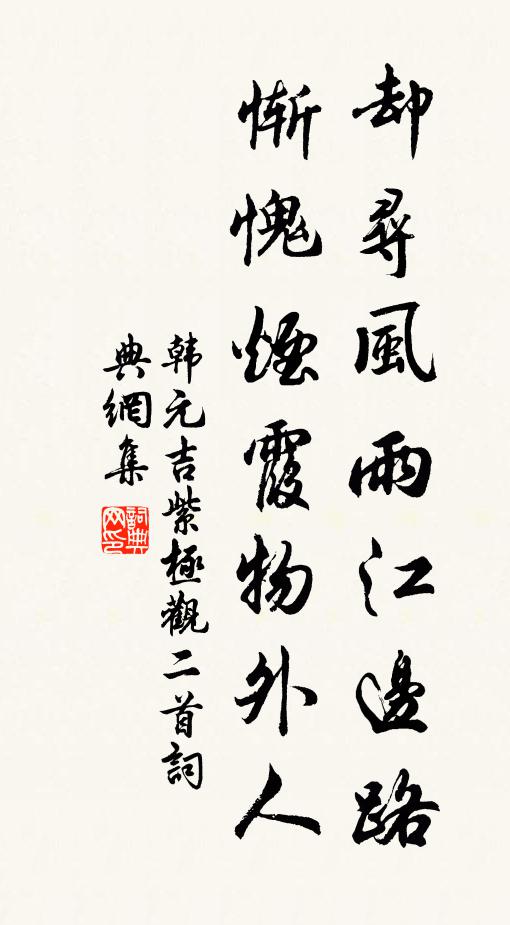 却尋風雨江邊路
慚愧煙霞物外人
韓元吉紫極觀二首詞
典網集
詞典
网印